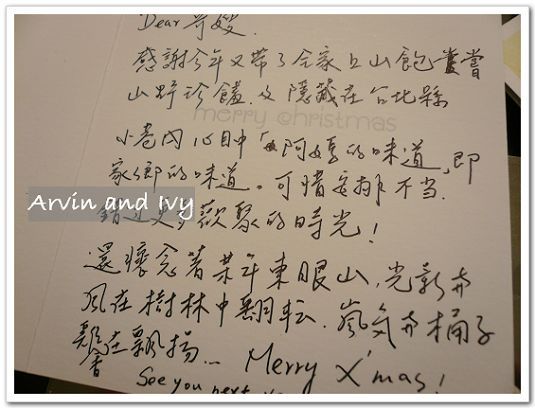 Dear 哥嫂.
感謝今年又帶了全家上山飽嘗
山野珍饈.及隱藏在台北縣
merry christmas
小巷內心目中「阿嬤的味道」即
家鄉的味道。可惜安排不當.
Arvin and Ivy
錯過更多歡聚的時光!
還懷念著某年東眼山,光影與
風在樹林中翻転.嵐氣與桶子
雞香在飄揚... Merry X'mas!
See you next